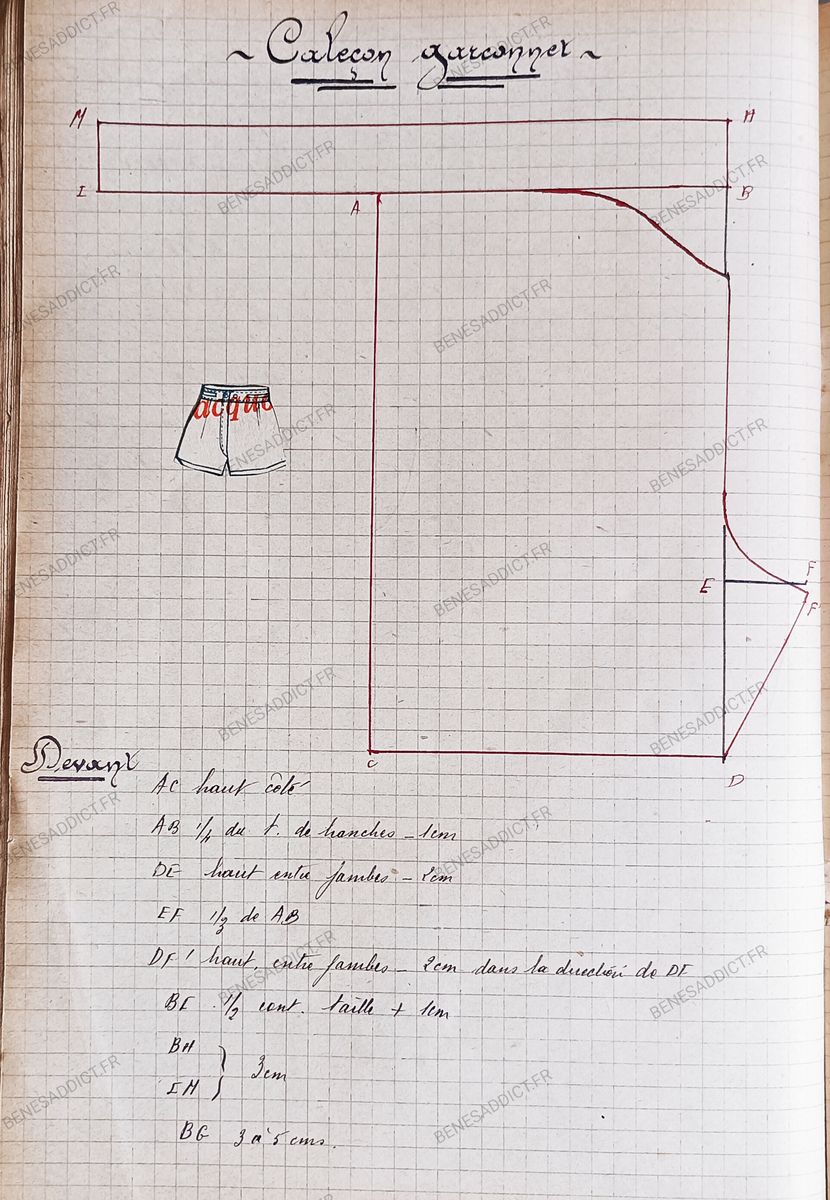 ~ Caleçon garçonnet ~
M
H
I
A
B
acque
E
F
F'
C
D
Devant
AC haut côté
AB 1/4 du t. de hanches - 1cm
DE haut entre jambes - 2cm
EF 1/3 de AB
DF' haut. entre jambes - 2cm dans la direction de DF
BI 1/2 cont. taille + 1cm
BH
IM
3cm
BG 3 à 5 cms.
BENESADDICT.FR